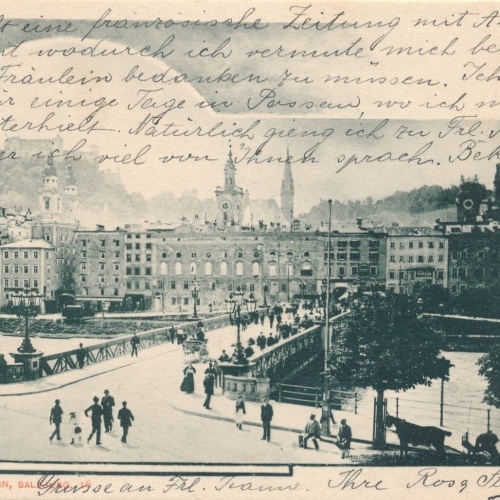 t eine französische Zeitung mit A
t wodurch ich vermute mich be
Fräulein bedanken zu müssen. Ich
ir einige Tage in Passau, wo ich m
terhielt. Natürlich gieng ich zu Frl.
er ich viel von Ihnen sprach. Bek
IN, SALZBURG. 15
Grüsse an Frl. Ihre Rosa